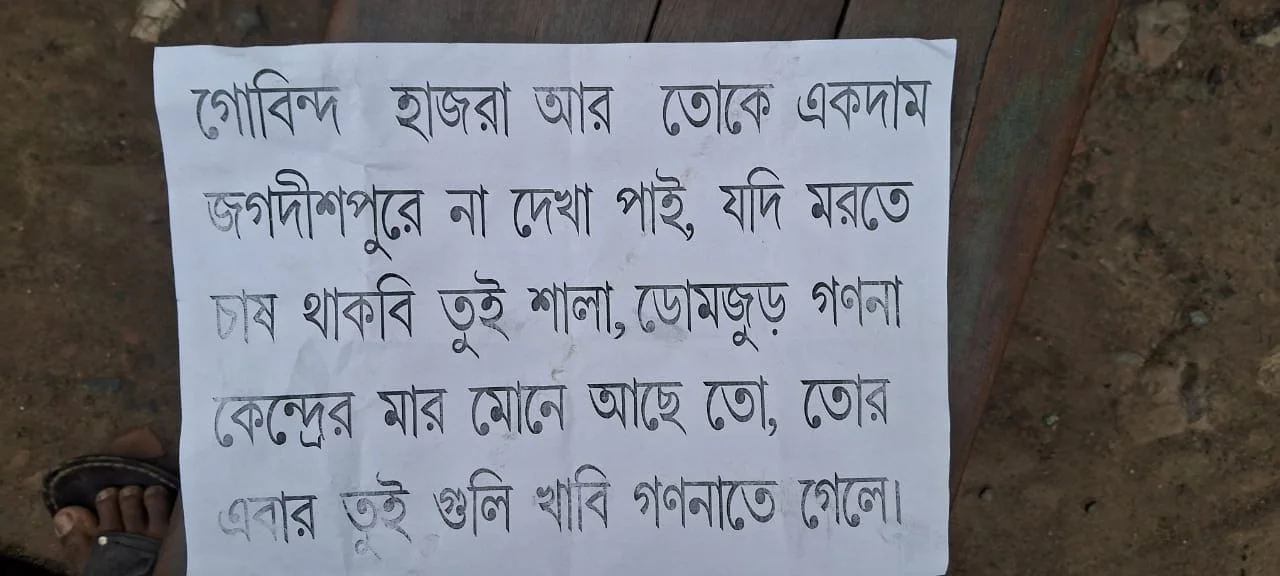 গোবিন্দ হাজরা আর তোকে একদাম
জগদীশপুরে না দেখা পাই, যদি মরতে
চাষ থাকবি তুই শালা, ডোমজুড় গণনা
কেন্দ্রের মার মোনে আছে তো, তোর
এবার তুই গুলি খাবি গণনাতে গেলে।